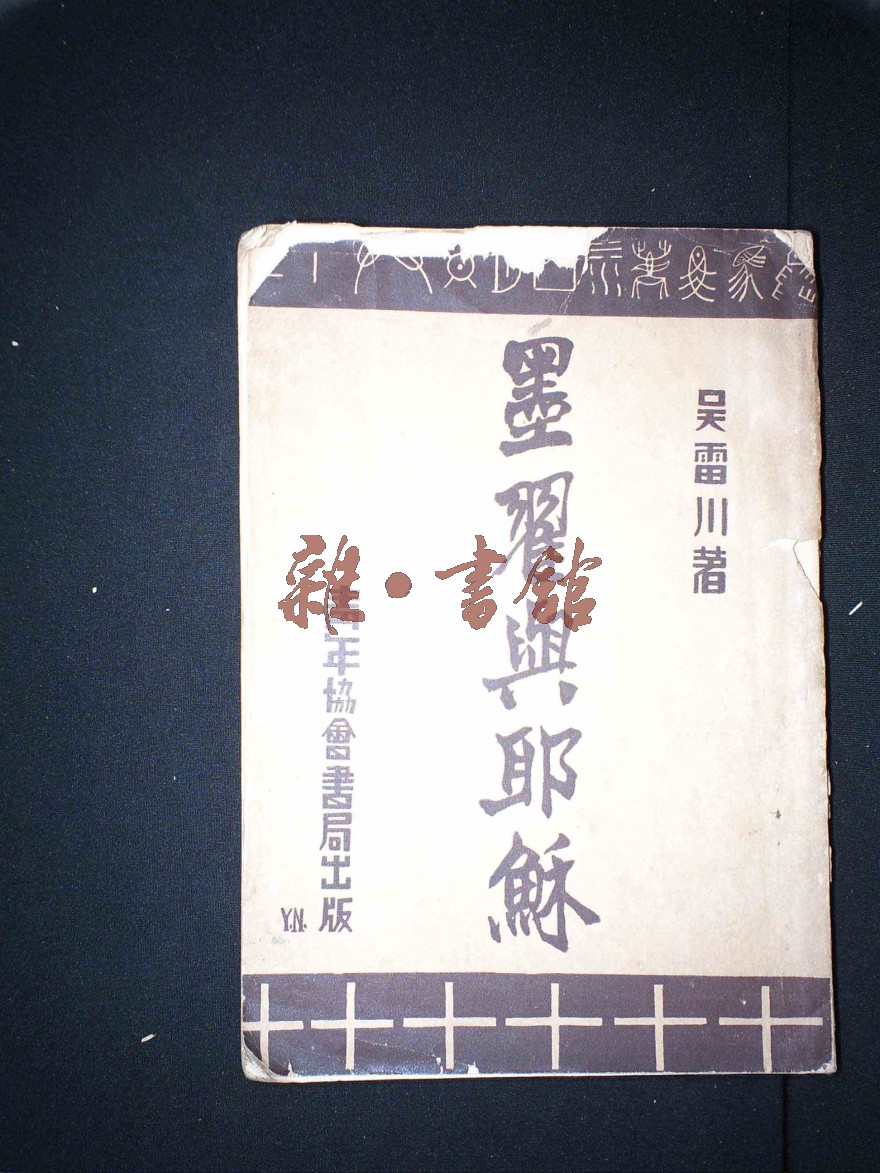 吴雷川著
墨翟與耶穌
青年協會書局出版
Y.N.
雜·書館